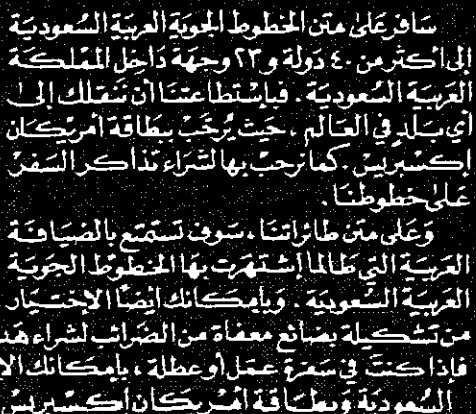 سَافِر عَلىٰ مَتن الخطوط الجوية العربية السعودية
إلى أكثر من ٤٠ دَولة و ٢٣ وجهة دَاخِل المملكة
العَربيَة السُعوديَة . فباستطاعتنا أن ننقلك إلى
أي بَلدٍ في العَالم ، حَيث يُرحَّب ببطاقة أمريكان
إكسبريس . كما نرحبّ بها لشراء تذاكر السَفر
عَلىٰ خطوطنا .
وَعَلى متن طائراتنا ، سَوف تستمتع بالضيَافة
العَربيَة التي طَالما إشتهَرت بها الخطوط الجَوية
العَربية السُعودية . وَبإمكانك أيضاً الإختيار
من تشكيلة بضائع معفاة من الضرائب لشراء
فإذا كنتَ في سَفرة عمَل أو عطلة ، بإمكانك
السعوديَة وَبطاقة أمريكان إكسبريس